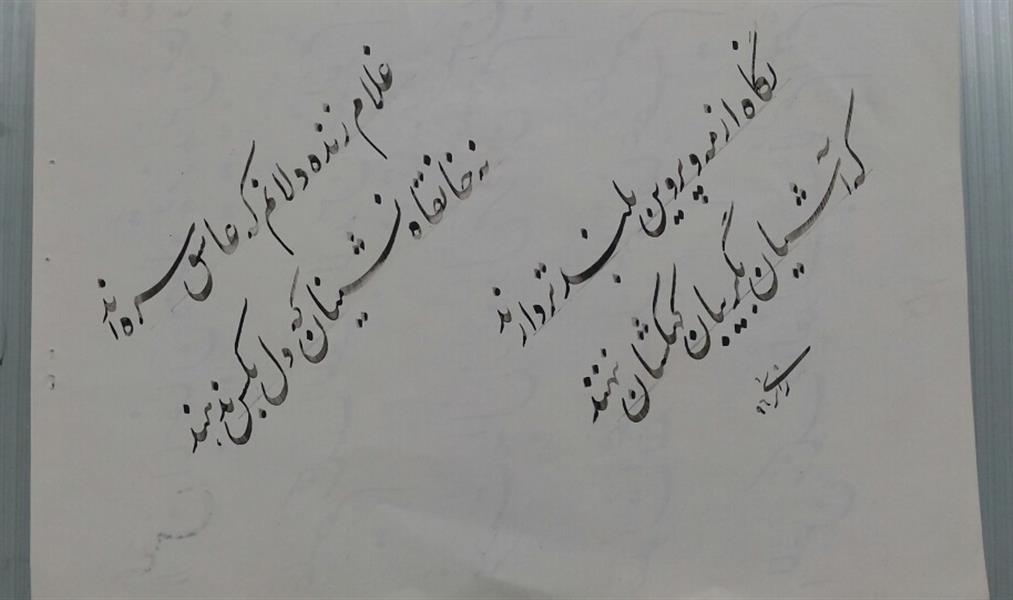 غلام زنده دلانم که عاشق سره اند
نه خانقاه نشینان که دل بکس ندهند
نگاه از مه و پروین بلند تر دارند
که آشیان بگریبان کهکشان ننهند